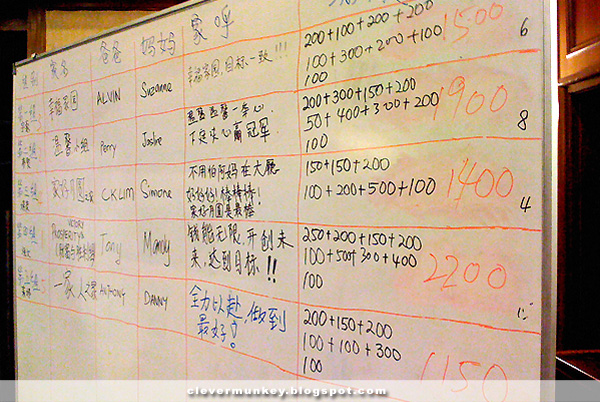 组别 家名 爸爸 妈妈 家呼
幸福家园 ALVIN Suzanne 幸福家园,目标一致!!!
200+100+200+200
100+300+200+100
100
1500
6
温馨小组 Perry
温馨温馨一条心,
下定决心赢冠军
200+300+150+200
50+400+300+200
100
1900
8
家好月圆 CK LIM Simone
不用怕阿妈在大厅
好好好!棒棒棒!
家好月圆是最棒!
150+150+200
100+200+500+100
1400
4
VICTORY
PROSPERITY Tony Mandy
钱能无限,开创未
来,达到目标!!
250+200+150+200
100+500+300+400
100
2200
一家人之家 ANTHONY DANNY
全力以赴,做到
最好!
200+150+200
100+100+300
100
1150
clevermunkey.blogspot.com